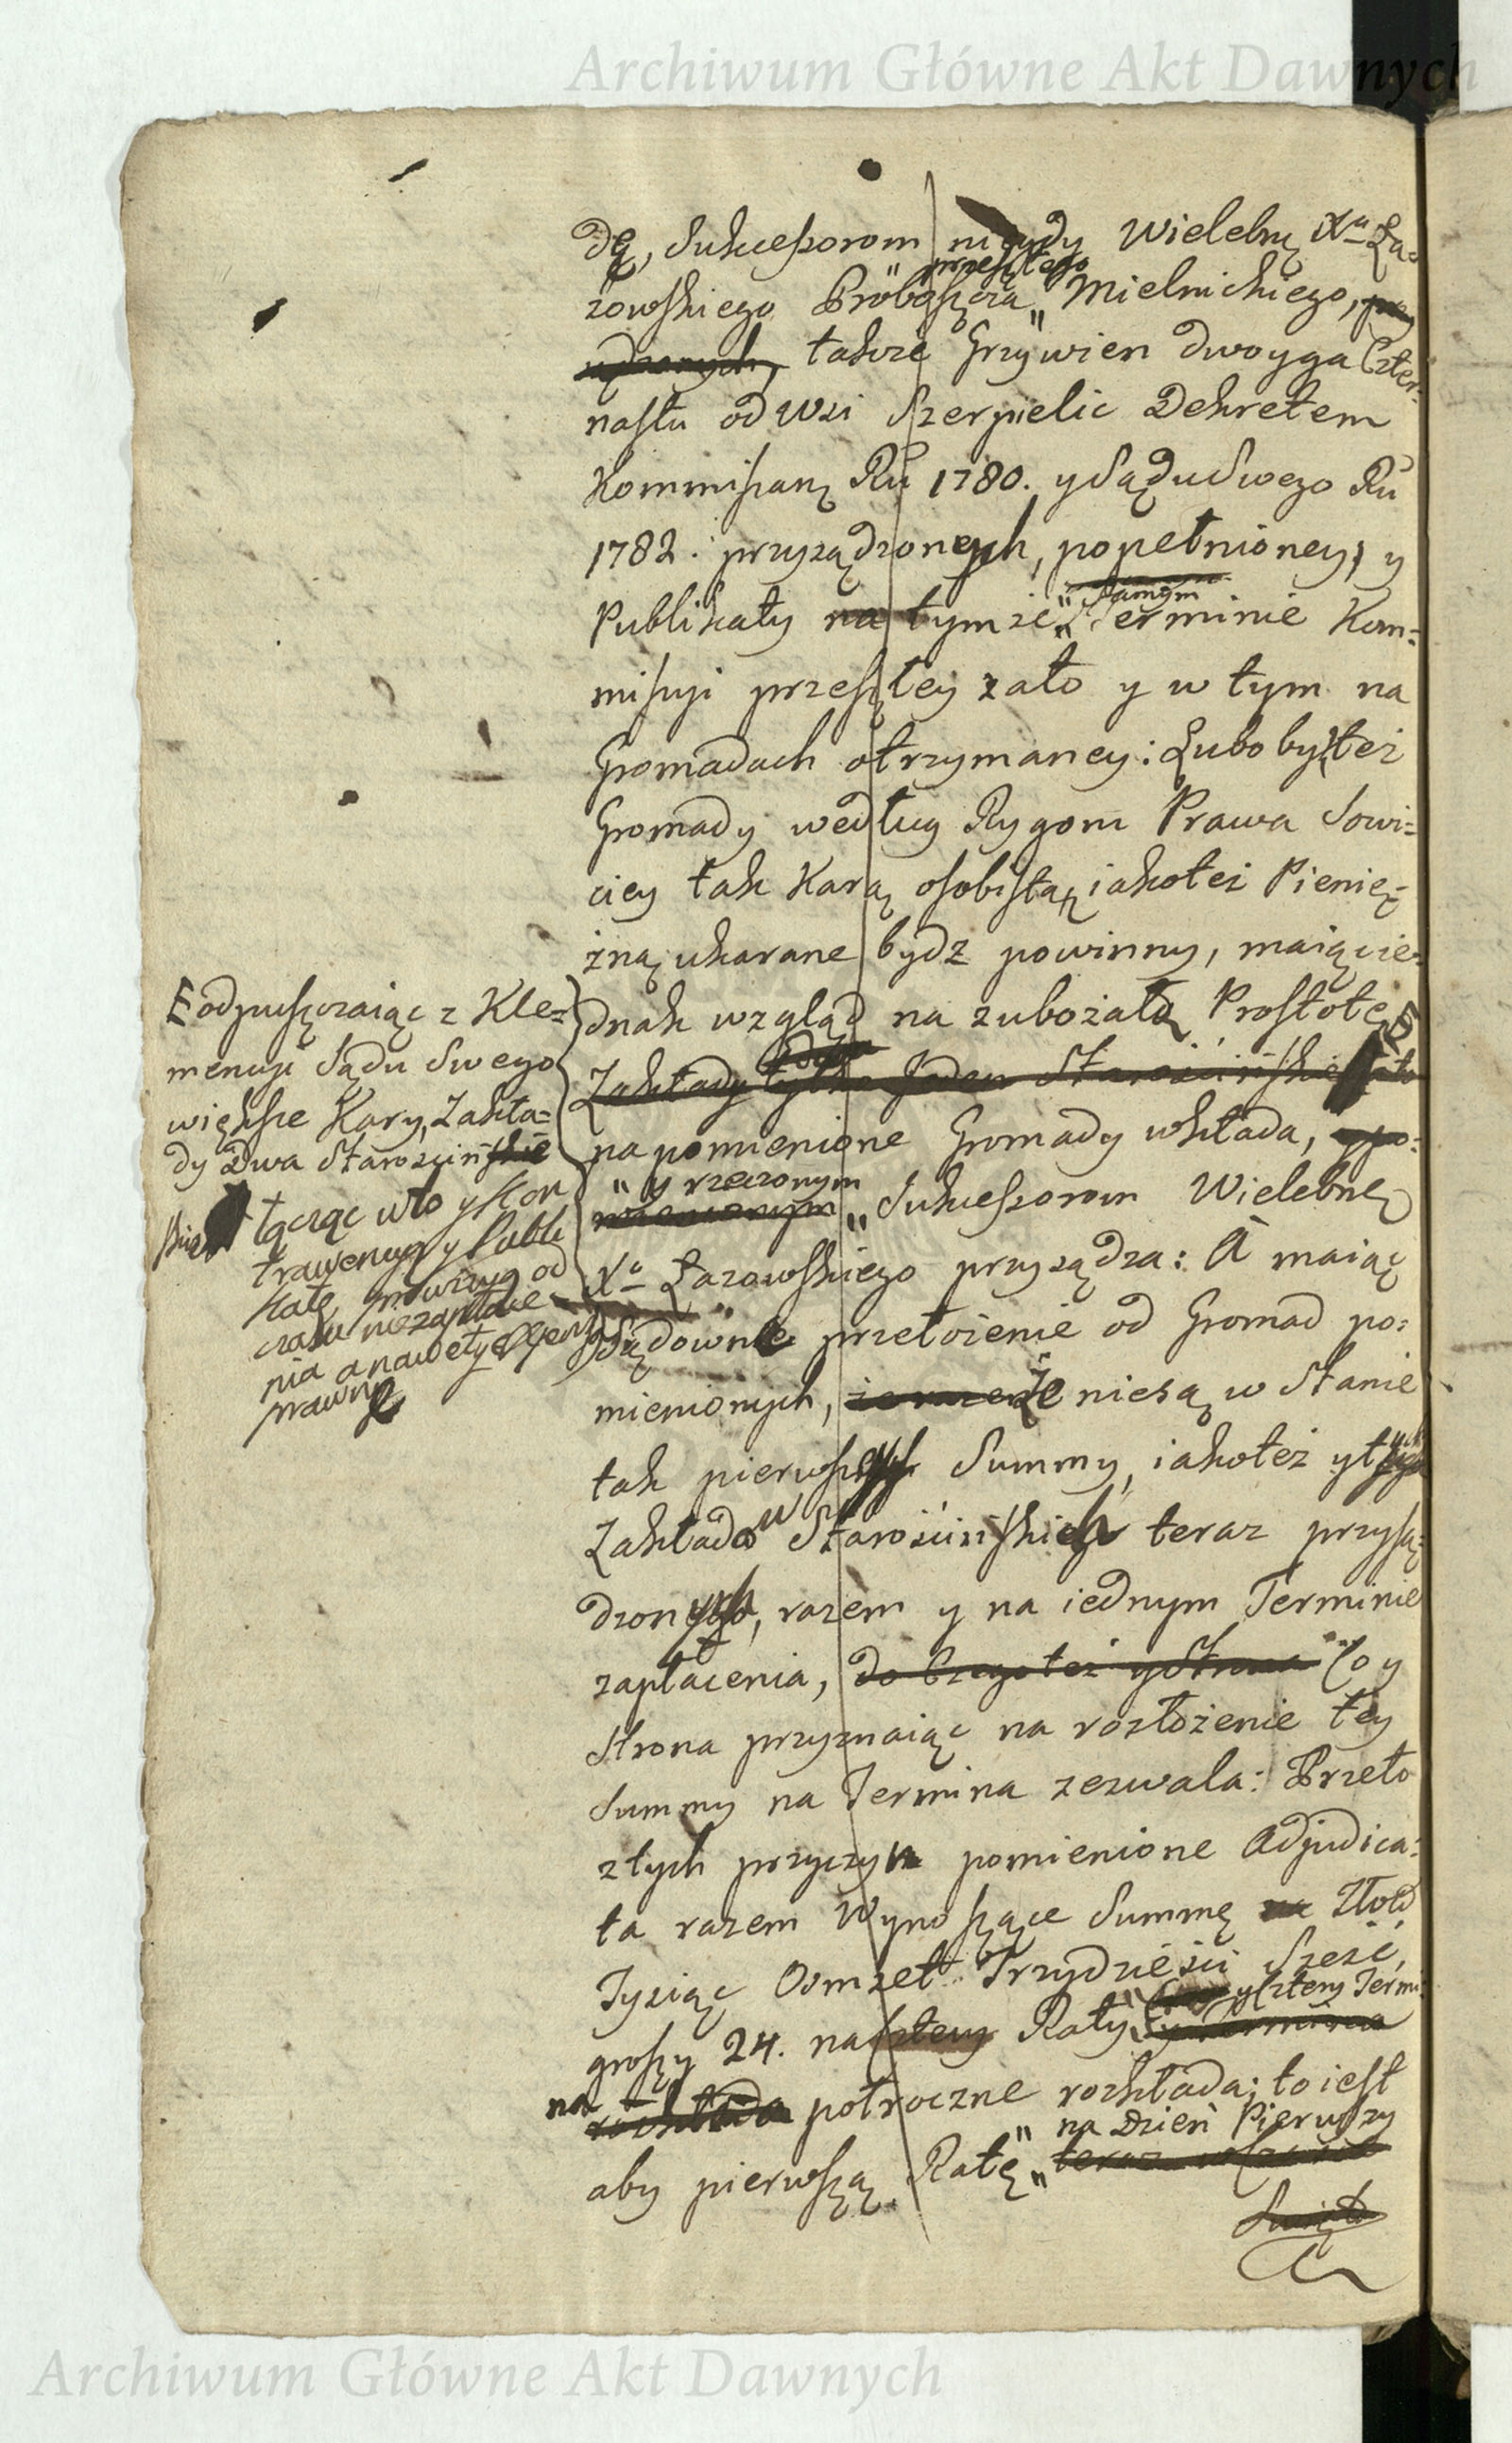 Archiwum Główne Akt Dawnych
dę, Sukcessorom niegdy Wielebnę Xa Ła-
zowskiego Proboszcza „ przeszłego „ Mielnickiego,
także Grzywien dwoyga Czter-
nastu od Wsi Szerpielic Dekretem
Kommissaryi Ru 1780. y Sądu Swego Ru
1782. przysądzonych, popełnioney, y
Publikaty na tymże „ Samym „ Terminie Kom=
missyi przeszłey zato y w tym na
Gromadach otrzymaney: Lubo by też
Gromady według Rygoru Prawa Sowi=
ciey tak Karą osobistą, iakoteż Pienię-
żną ukarane bydz powinny, maiąc ie-
dnak wzgląd na zubożałą Prostotę,
Zakłady tylko Jeden Starościńskie
na pomienione Gromady wkłada,
„ y rzeczonym „ Sukcessorom Wielebnę
Xa Łazowskiego przysądza: A maiąc
Sądownie przełożenie od Gromad po=
mienionych, że nie są w Stanie
tak pierwszych Summy, iakoteż y tych
Zakładow Starościńskich teraz przysą=
dzonych, razem y na iednym Terminie
zapłacenia, do Czego też y Strona Co y
Strona przyznaiąc na rozłożenie tey
Summy na Termina zezwala: Przeto
z tych przyczyn pomienione Adjudica=
ta razem Wynoszące Summę Złotd
Tysiąc Osmset Trzydzieści Sześć,
groszy 24. na cztery Raty y cztery Termi-
na rozkłada połroczne rozkłada; to iest
aby pierwszą Ratę „ na Dzień Pierwszy
Święto
E odpuszczaiąc z Kle=
mencyi Sądu Swego
większe Kary, Zakła=
dy Dwa Starościń
skie łącząc w to y Kon
trawencyą y Publi
katę prowizyą od
czasu niezapłace
nia a nawet y Expens
prawny
Archiwum Główne Akt Dawnych